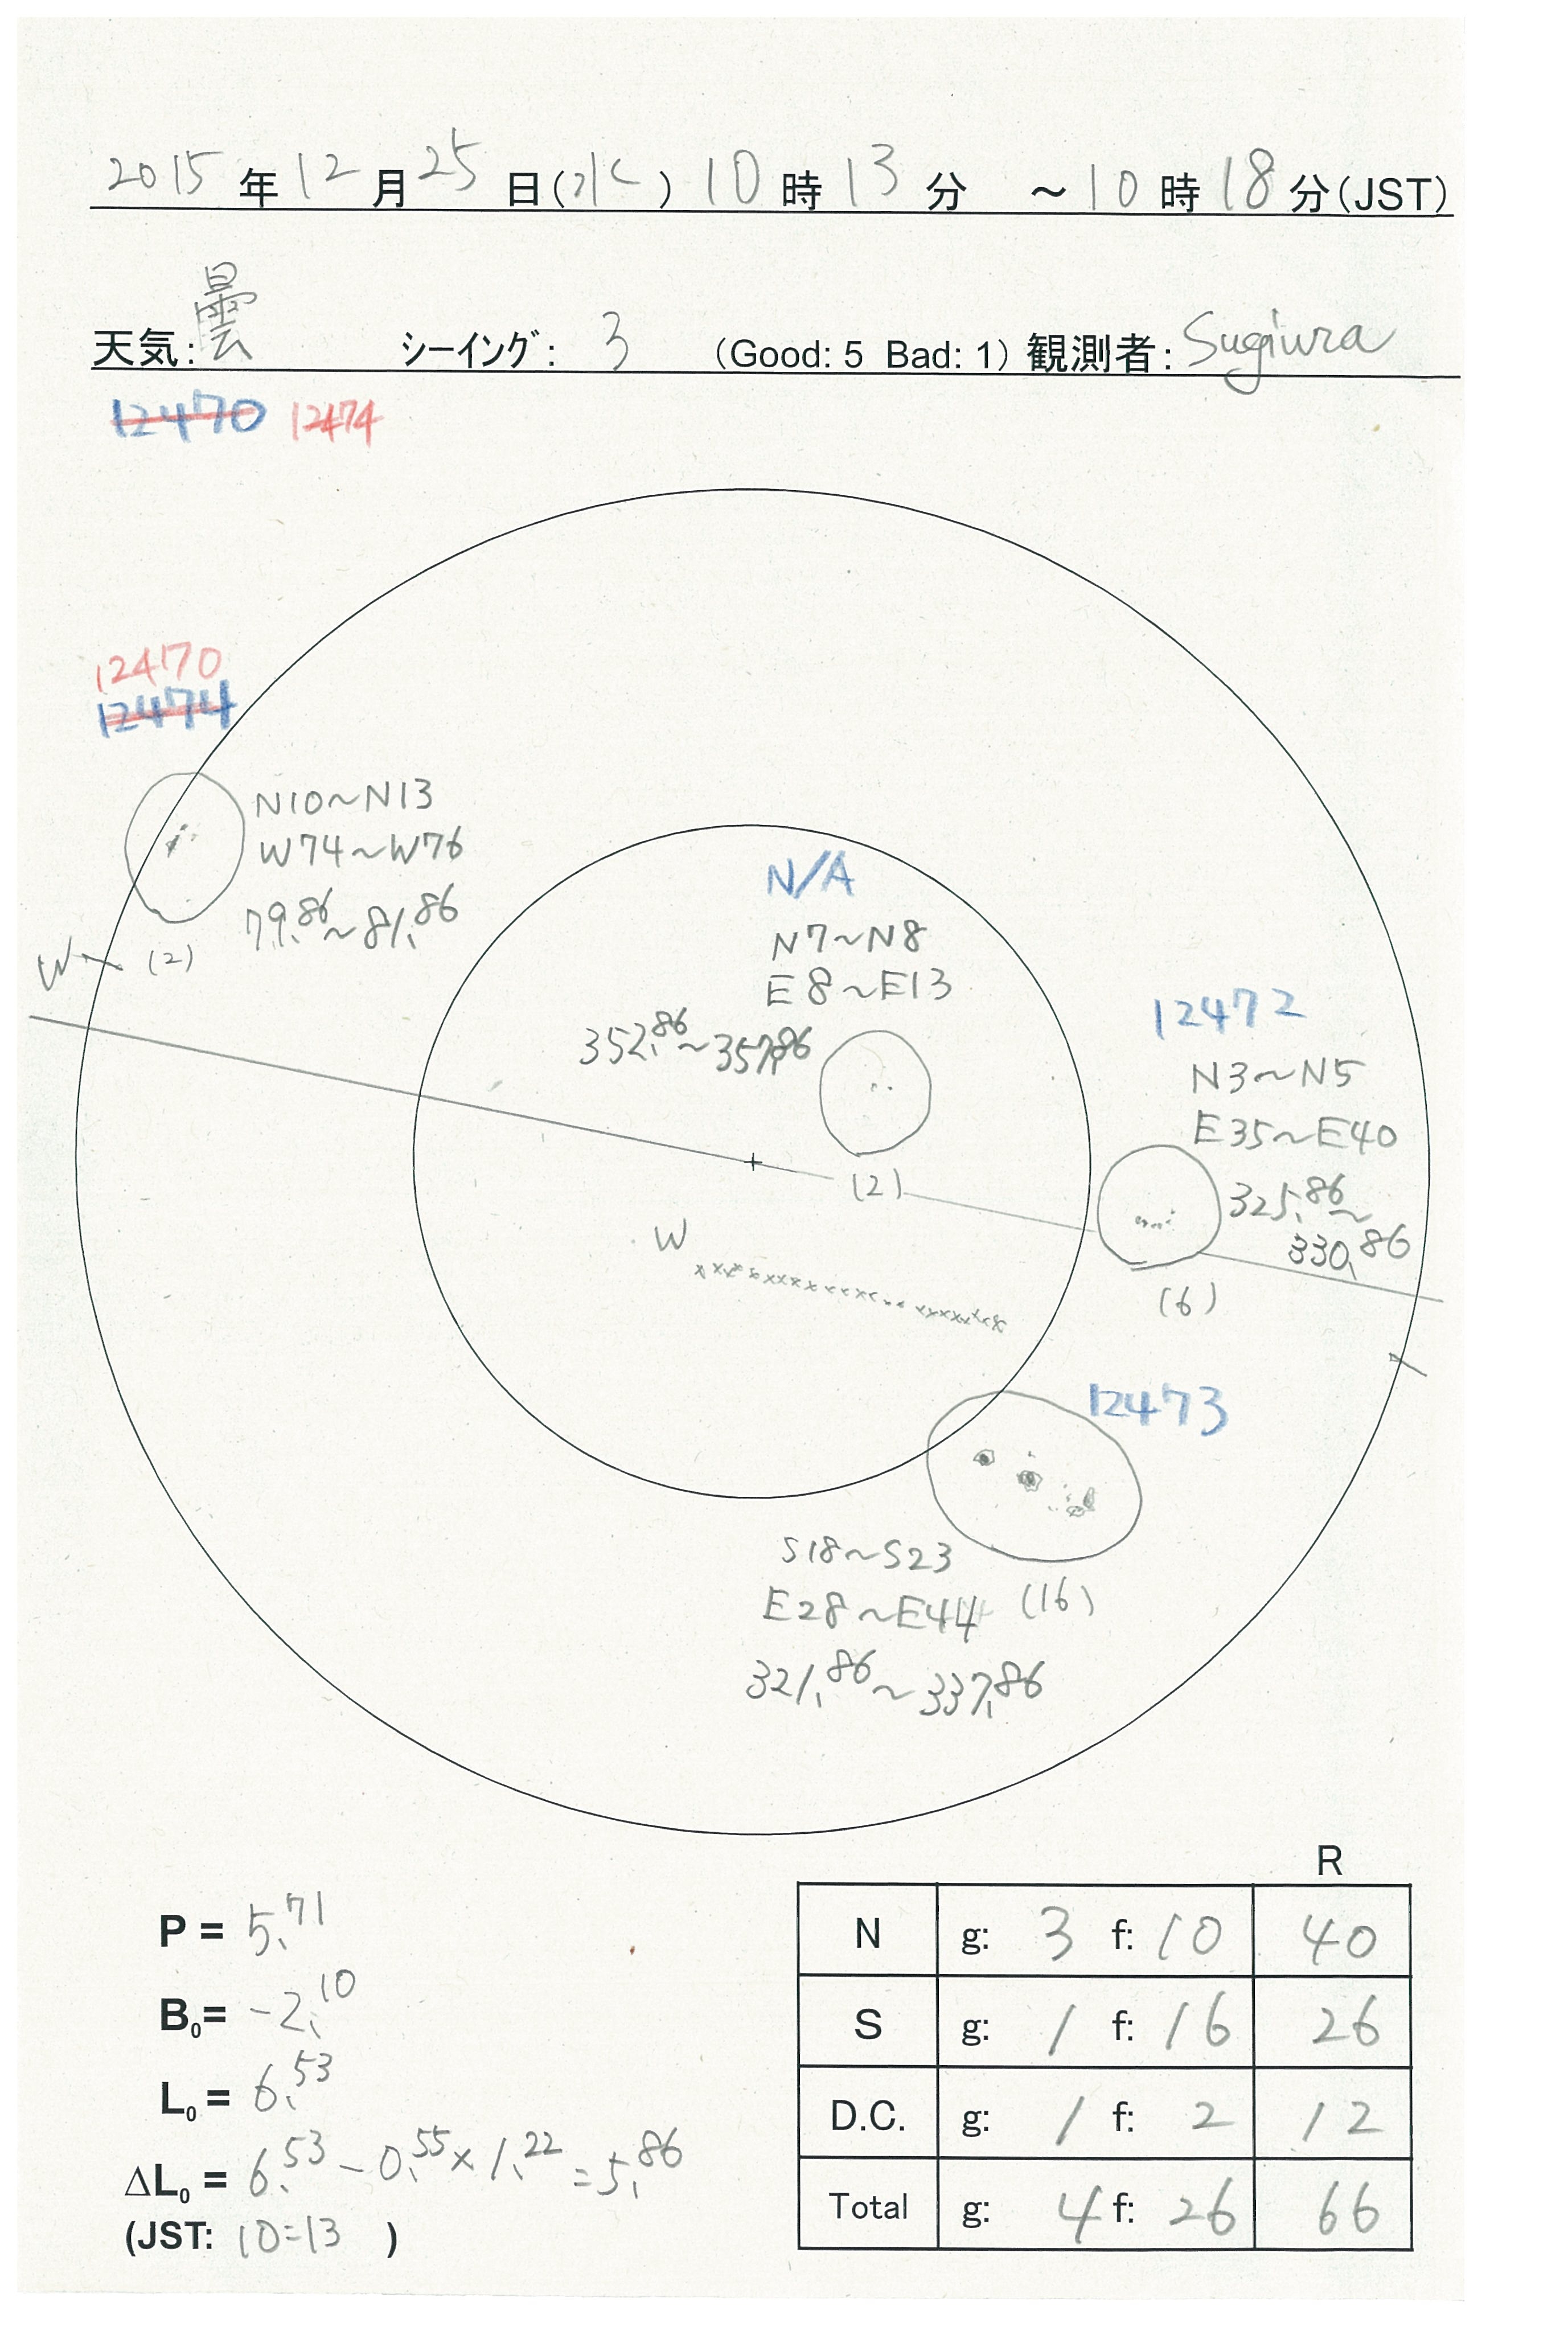 2015年12月25日(水) 10時13分 ～10時18分(JST)
天気:曇 シーイング: 3 (Good: 5 Bad: 1) 観測者: Sugiura
12470 12474
12470
12474
N10～N13
W74～W76
79.86～81.86
W
(2)
N/A
N7～N8
E8～E13
352.86～357.86
(2)
12472
N3～N5
E35～E40
325.86～
330.86
(6)
W
12473
S18～S23
E28～E44 (16)
321.86～337.86
P = 5.71
B0= -2.10
L0= 6.53
ΔL0= 6.53-0.55×1.22=5.86
(JST: 10:13 )
R
N g: 3 f: 10 40
S g: 1 f: 16 26
D.C. g: 1 f: 2 12
Total g: 4 f: 26 66